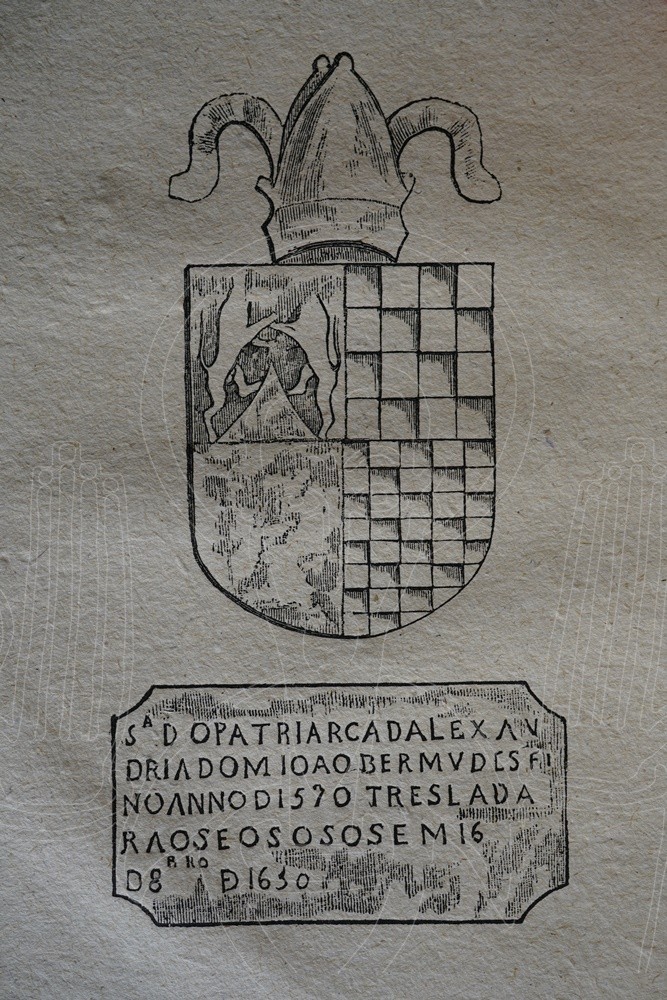 Sᴬ D OPATRIARCADALEXAN
DRIADOM IOAO BERMVDES FI
NOANNOD 1570 TRESLADA
RAOSEOSOSOSEM 16
D8ᴮᴿᴼ Đ 1630